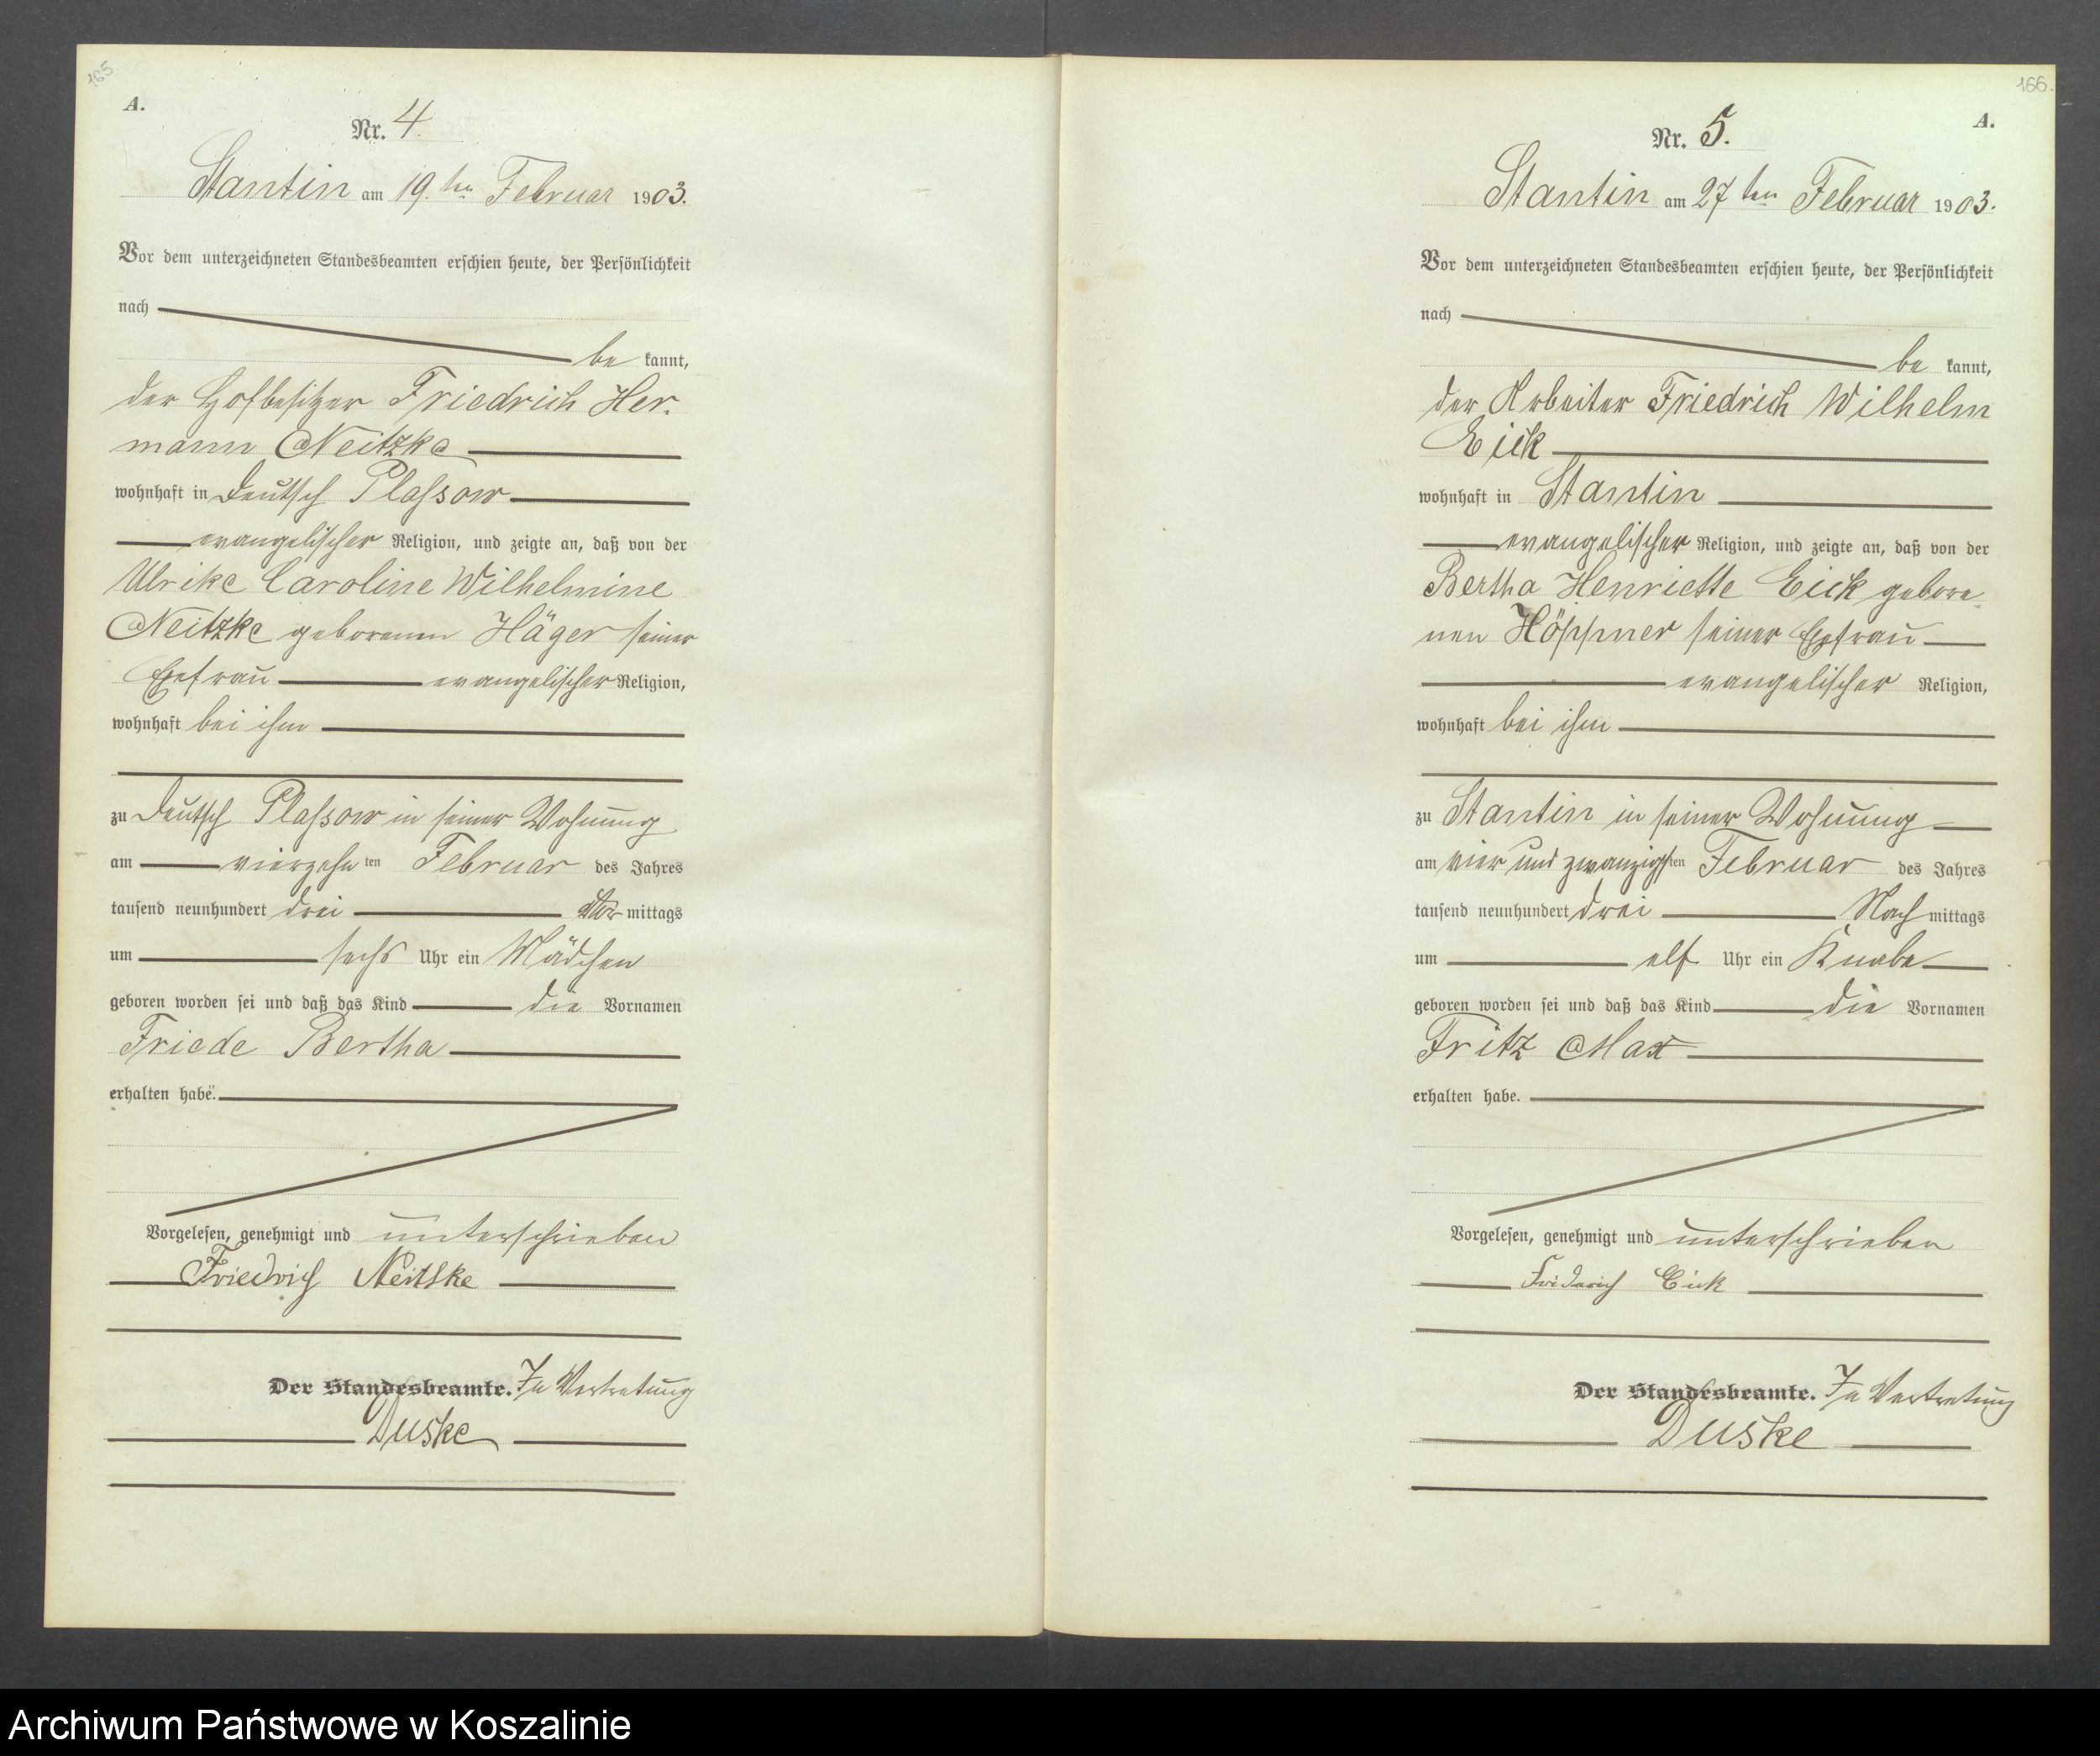 165
A.
Nr. 4.
Stantin am 19. ten Februar 1903.
Vor dem unterzeichneten Standesbeamten erschien heute, der Persönlichkeit
nach
be kannt,
der Hofbesitzer Friedrich Her-
mann Neitzke
wohnhaft in Deutsch Plassow
evangelischer Religion, und zeigte an, daß von der
Ulrike Caroline Wilhelmine
Neitzke geborenen Häger seiner
Ehefrau evangelischer Religion,
wohnhaft bei ihm
zu Deutsch Plassow in seiner Wohnung
am vierzehn ten Februar des Jahres
tausend neunhundert drei Vor mittags
um sechs Uhr ein Mädchen
geboren worden sei und daß das Kind die Vornamen
Friede Bertha
erhalten habe.
Vorgelesen, genehmigt und unterschrieben
Friedrich Neitzke
Der Standesbeamte. In Vertretung
Duske
166.
A.
Nr. 5.
Stantin am 27 ten Februar 1903.
Vor dem unterzeichneten Standesbeamten erschien heute, der Persönlichkeit
nach
be kannt,
der Arbeiter Friedrich Wilhelm
Eick
wohnhaft in Stantin
evangelischer Religion, und zeigte an, daß von der
Bertha Henriette Eick gebore
nen Höppner seiner Ehefrau
evangelischer Religion,
wohnhaft bei ihm
zu Stantin in seiner Wohnung
am vier und zwanzigsten Februar des Jahres
tausend neunhundert drei Nach mittags
um elf Uhr ein Knabe
geboren worden sei und daß das Kind die Vornamen
Fritz Max
erhalten habe.
Vorgelesen, genehmigt und unterschrieben
Friderich Eick
Der Standesbeamte. In Vertretung
Duske
Archiwum Państwowe w Koszalinie